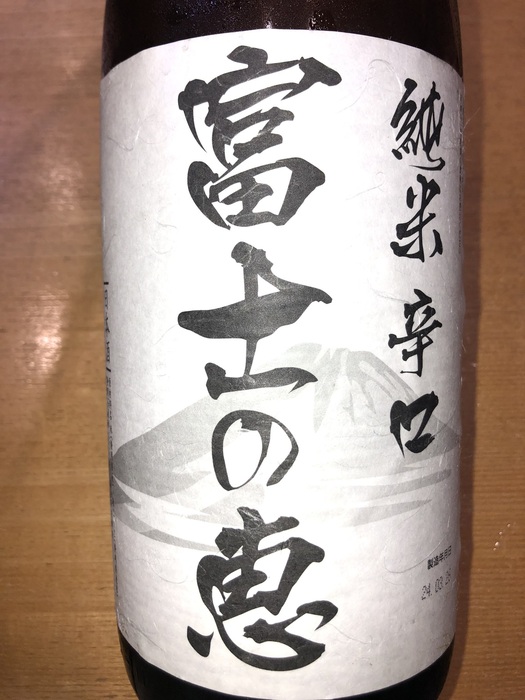 純米 辛口
富士の恵
製造年月日
24.03.